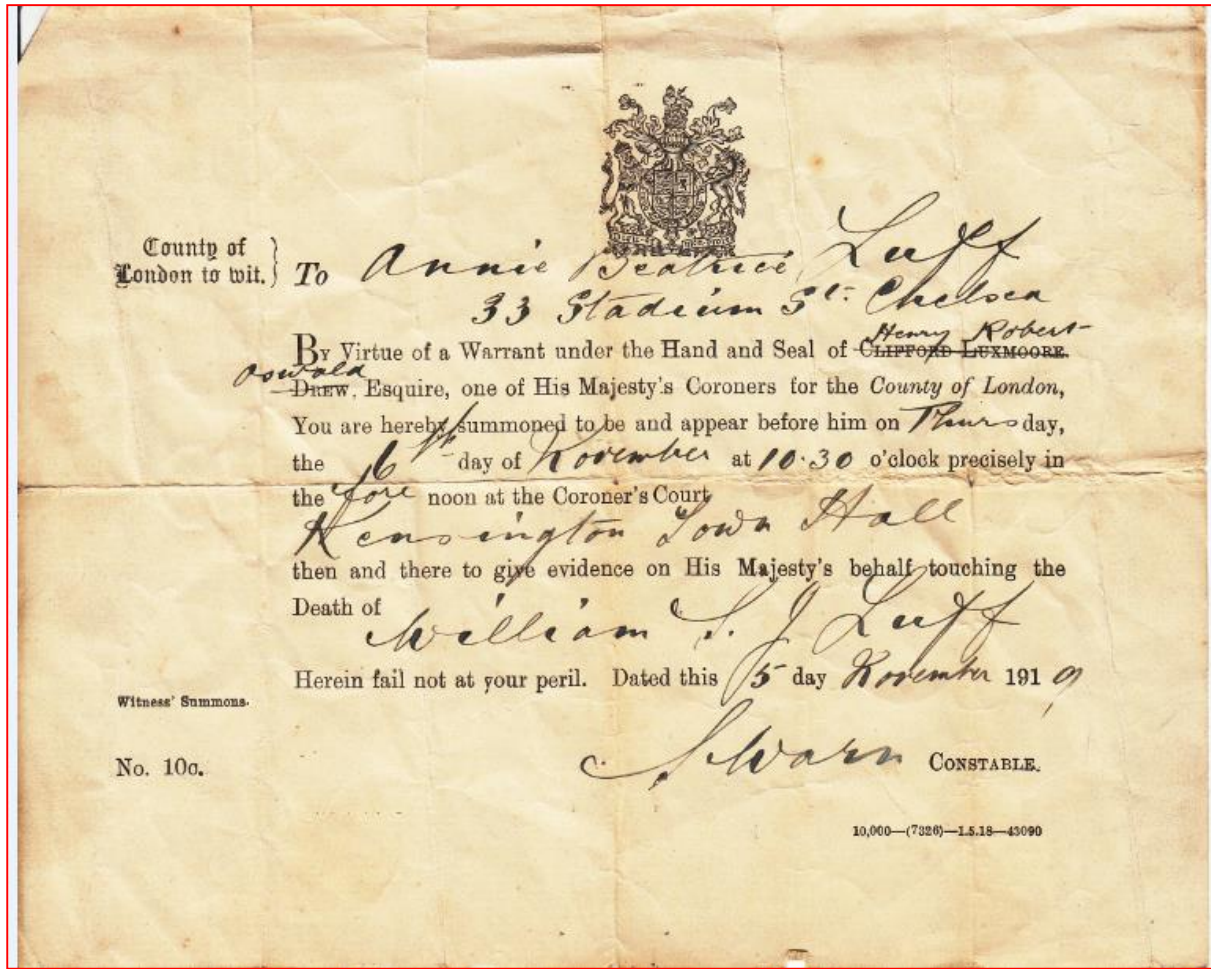 County of
London to wit.
To Annie Beatrice Luff
33 Stadium St. Chelsea
Henry Robert
By Virtue of a Warrant under the Hand and Seal of CLIFFORD LUXMOORE
Oswald
DREW, Esquire, one of His Majesty's Coroners for the County of London,
You are hereby summoned to be and appear before him on Thursday,
the 6th day of November at 10.30 o'clock precisely in
the fore noon at the Coroner's Court
Kensington Town Hall
then and there to give evidence on His Majesty's behalf touching the
Death of
William S. J Luff
Herein fail not at your peril. Dated this 5 day November 1919
Witness' Summons.
No. 10c.
CONSTABLE.
10,000—(7326)—1.5.18—43090